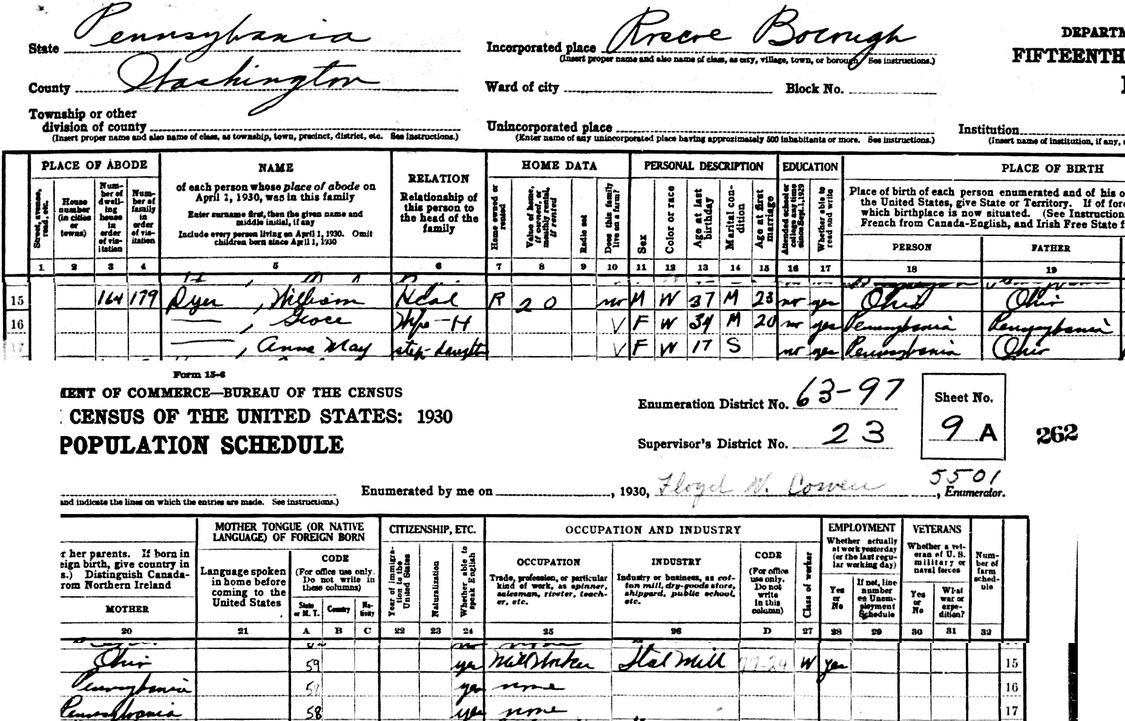 State Pennsylvania
Incorporated place Roscoe Borough
DEPARTM
(Insert proper name and also name of class, as city, village, town, or borough. See instructions.)
FIFTEENTH
County Washington
Ward of city
Block No.
Township or other
division of county
(Insert proper name and also name of class, as township, town, precinct, district, etc. See instructions.)
Unincorporated place
(Enter name of any unincorporated place having approximately 500 inhabitants or more. See instructions.)
Institution
(Insert name of institution, if any,
PLACE OF ABODE
Street, avenue, road, etc.
House number (in cities or towns)
Num-ber of dwell-ing house in order of vis-itation
Num-ber of family in order of vis-itation
NAME
of each person whose place of abode on
April 1, 1930, was in this family
Enter surname first, then the given name and
middle initial, if any
Include every person living on April 1, 1930. Omit
children born since April 1, 1930
RELATION
Relationship of
this person to
the head of the
family
HOME DATA
Home owned or rented
Value of home, if owned, or monthly rental, if rented
Radio set
Does this family live on a farm?
PERSONAL DESCRIPTION
Sex
Color or race
Age at last birthday
Marital con-dition
Age at first marriage
EDUCATION
Attended school or college any time since Sept. 1, 1929
Whether able to read and write
PLACE OF BIRTH
Place of birth of each person enumerated and of his o
the United States, give State or Territory. If of fore
which birthplace is now situated. (See Instruction
French from Canada-English, and Irish Free State f
PERSON
FATHER
1 2 3 4 5 6 7 8 9 10 11 12 13 14 15 16 17 18 19
15 164 179 Dyer, William Head R 20 no M W 37 M 23 no yes Ohio Ohio
16 ——, Grace Wife-H V F W 34 M 20 no yes Pennsylvania Pennsylvania
17 ——, Anna May step-daughter V F W 17 S no yes Pennsylvania Ohio
Form 15-6
MENT OF COMMERCE—BUREAU OF THE CENSUS
CENSUS OF THE UNITED STATES: 1930
POPULATION SCHEDULE
Enumeration District No. 63-97
Supervisor's District No. 23
Sheet No.
9 A
262
and indicate the lines on which the entries are made. See instructions.)
Enumerated by me on , 1930, Floyd W. Cowen , Enumerator.
5501
r her parents. If born in
eign birth, give country in
s.) Distinguish Canada-
rom Northern Ireland
MOTHER
MOTHER TONGUE (OR NATIVE
LANGUAGE) OF FOREIGN BORN
Language spoken
in home before
coming to the
United States
CODE
(For office use only.
Do not write in
these columns)
State or M. T.
Country
Na-tivity
CITIZENSHIP, ETC.
Year of immigra-tion to the United States
Naturalization
Whether able to speak English
OCCUPATION AND INDUSTRY
OCCUPATION
Trade, profession, or particular
kind of work, as spinner,
salesman, riveter, teach-
er, etc.
INDUSTRY
Industry or business, as cot-
ton mill, dry-goods store,
shipyard, public school,
etc.
CODE
(For office
use only.
Do not
write
in this
column)
Class of worker
EMPLOYMENT
Whether actually
at work yesterday
(or the last regu-
lar working day)
Yes or No
If not, line number on Unem-ployment Schedule
VETERANS
Whether a vet-
eran of U. S.
military or
naval forces
Yes or No
What war or expe-dition?
Num-ber of farm sched-ule
20 21 A B C 22 23 24 25 26 D 27 28 29 30 31 32
Ohio 59 yes Mill Worker Steel Mill W yes 15
Pennsylvania yes none 16
Pennsylvania 58 yes none 17